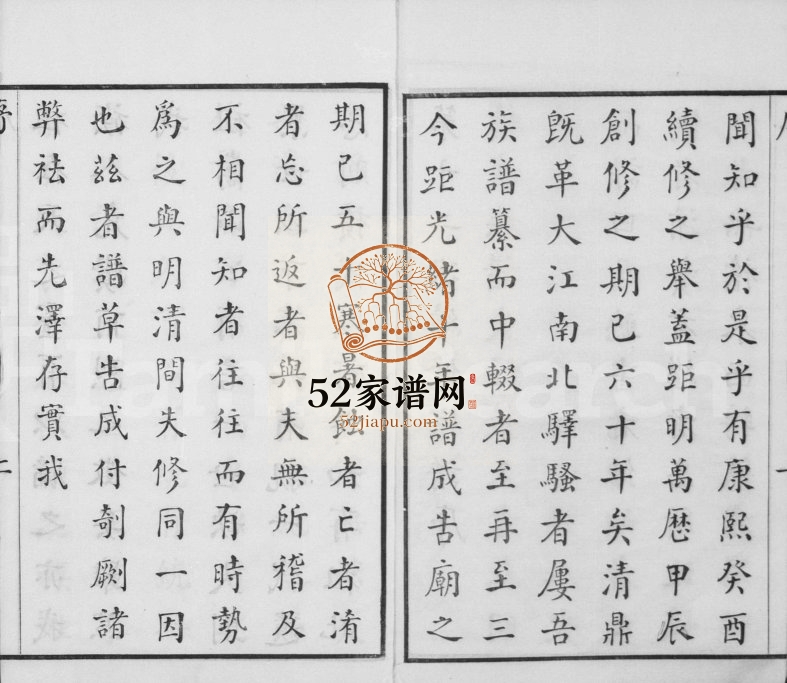 聞知乎於是乎有康熙癸酉
續修之舉蓋距明萬歷甲辰
創修之期已六十年矣清鼎
旣革大江南北驛騷者屢吾
族譜纂而中輟者至再至三
今距光緒十年譜成告廟之
期已五十寒暑蝕者亡者淆
者忘所返者與夫無所稽及
不相聞知者往往而有時勢
爲之與明清間失修同一因
也茲者譜草告成付剞劂諸
弊祛而先澤存實我
52家谱网
52jiapu.com